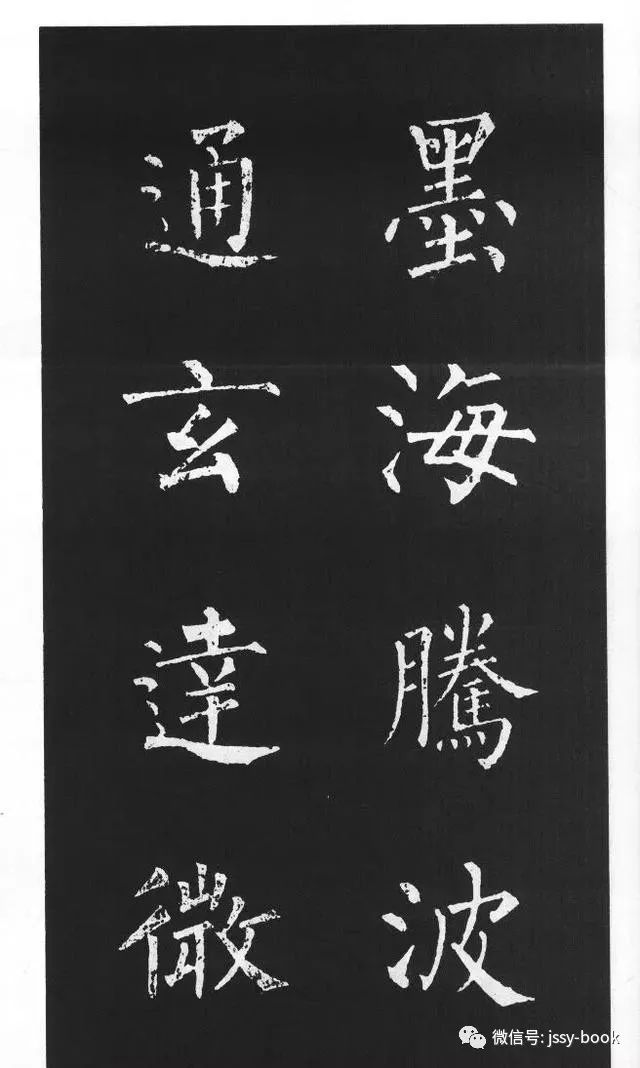 墨海騰波
通玄達微
微信号: jssy-book